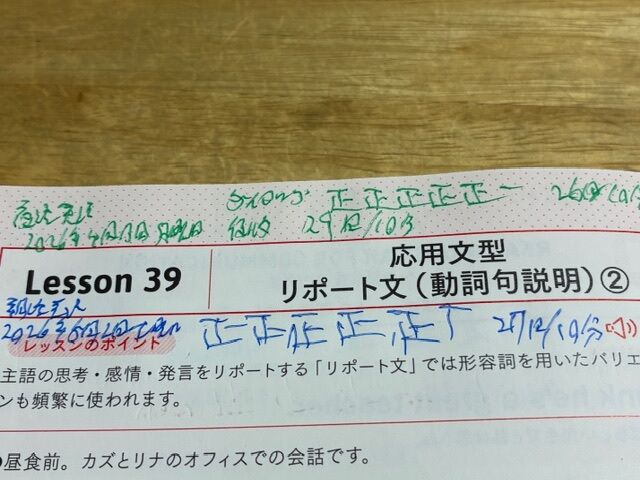 タイロング 正正正正正一 26回/10分
2026年 月 日 月曜日 29回/10分
Lesson 39
応用文型
リポート文(動詞句説明)②
2026年6月2日 正正正正正丅 27回/10分
レッスンのポイント
主語の思考・感情・発言をリポートする「リポート文」では形容詞を用いたバリエ
ンも頻繁に使われます。
の昼食前。カズとリナのオフィスでの会話です。